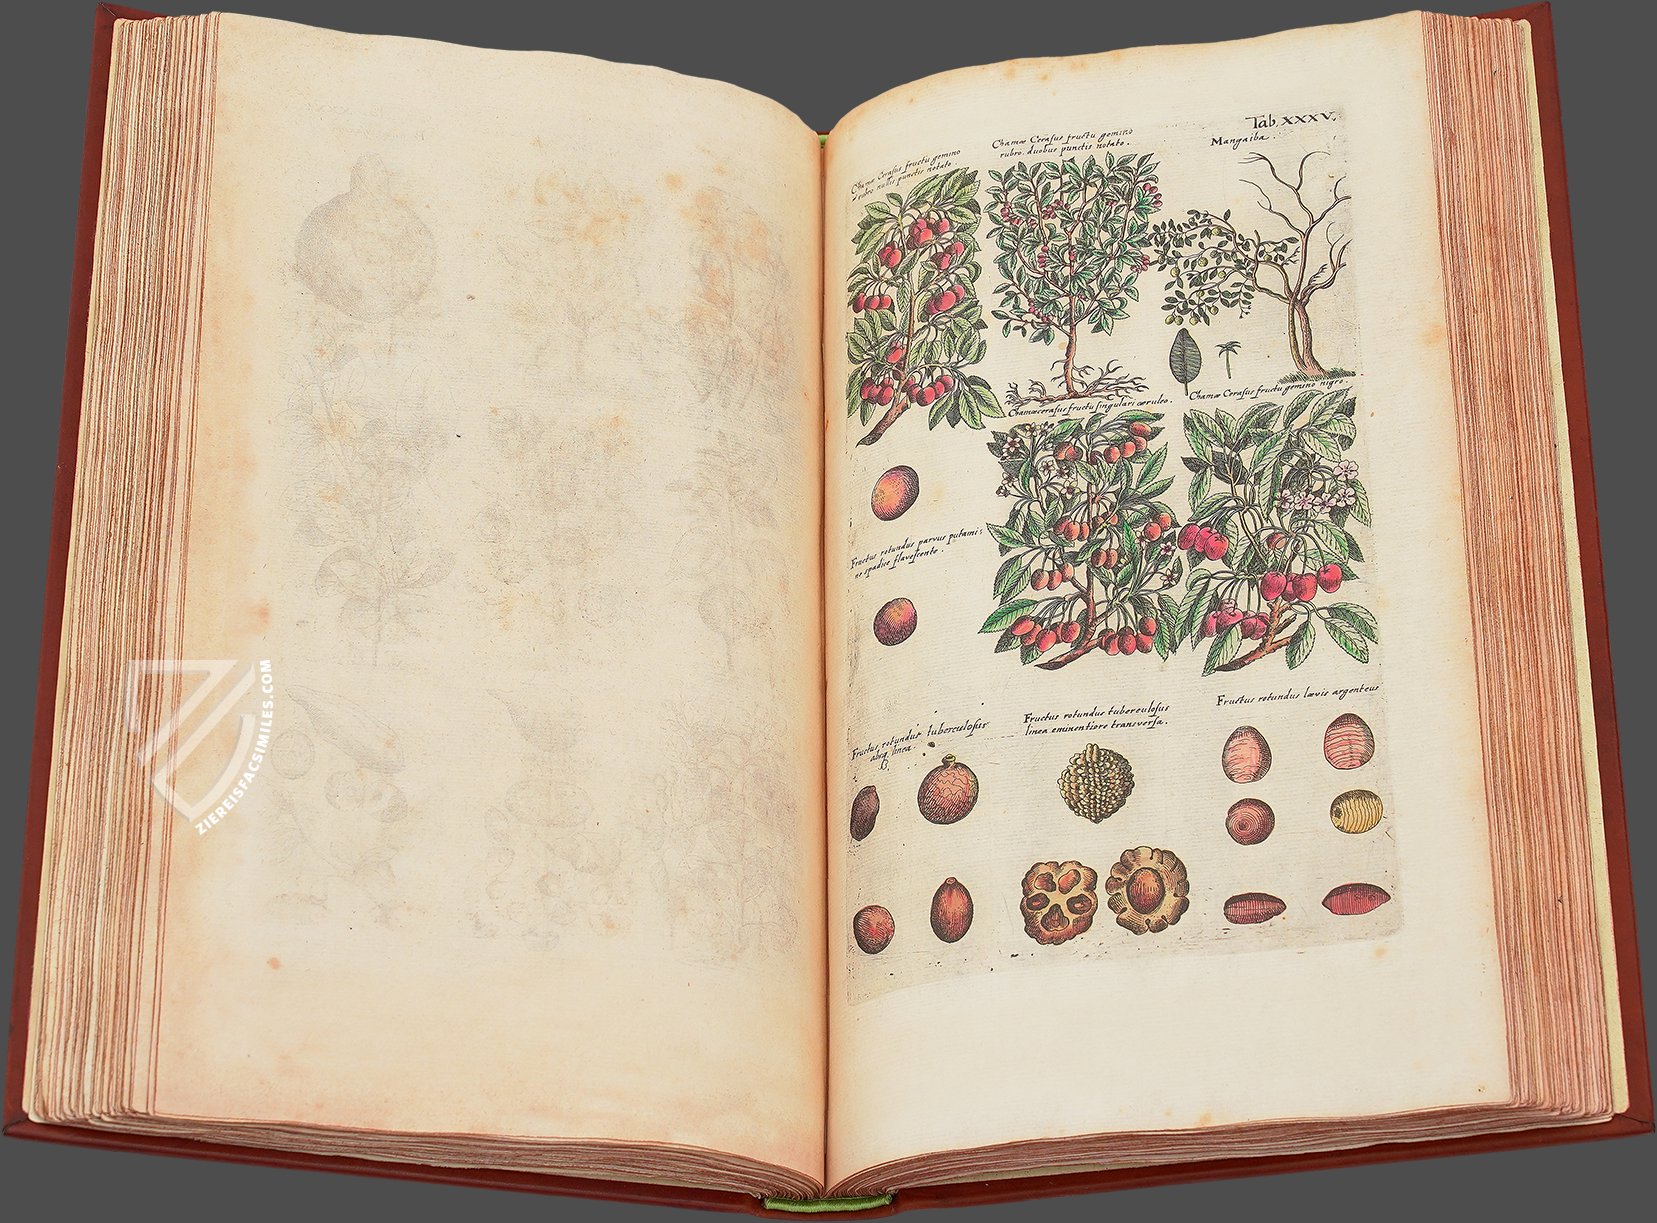 Tab. XXXV.
Chamæ Cerasus fructu gemino
rubro nullis punctis notato.
Chamæ Cerasus fructu gemino
rubro duobus punctis notato.
Mangaiba.
Chamæcerasus fructu singulari cœruleo.
Chamæ Cerasus fructu gemino nigro.
Fructus rotundus parvus putami,
ne spadice flavescente.
Fructus rotundus tuberculosus
absq linea.
Fructus rotundus tuberculosus
linea eminentiore transversa.
Fructus rotundus lævis argenteus
ZIEREISFACSIMILES.COM